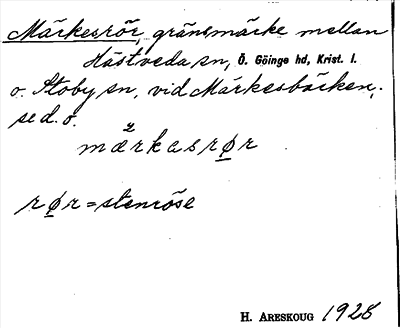 Märkesrör, gränsmärke mellan
Hästveda sn, Ö. Göinge hd, Krist. l.
o. Stoby sn, vid Märkesbäcken,
se d. o.
mærkasrør
rør = stenröse
H. ARESKOUG 1928